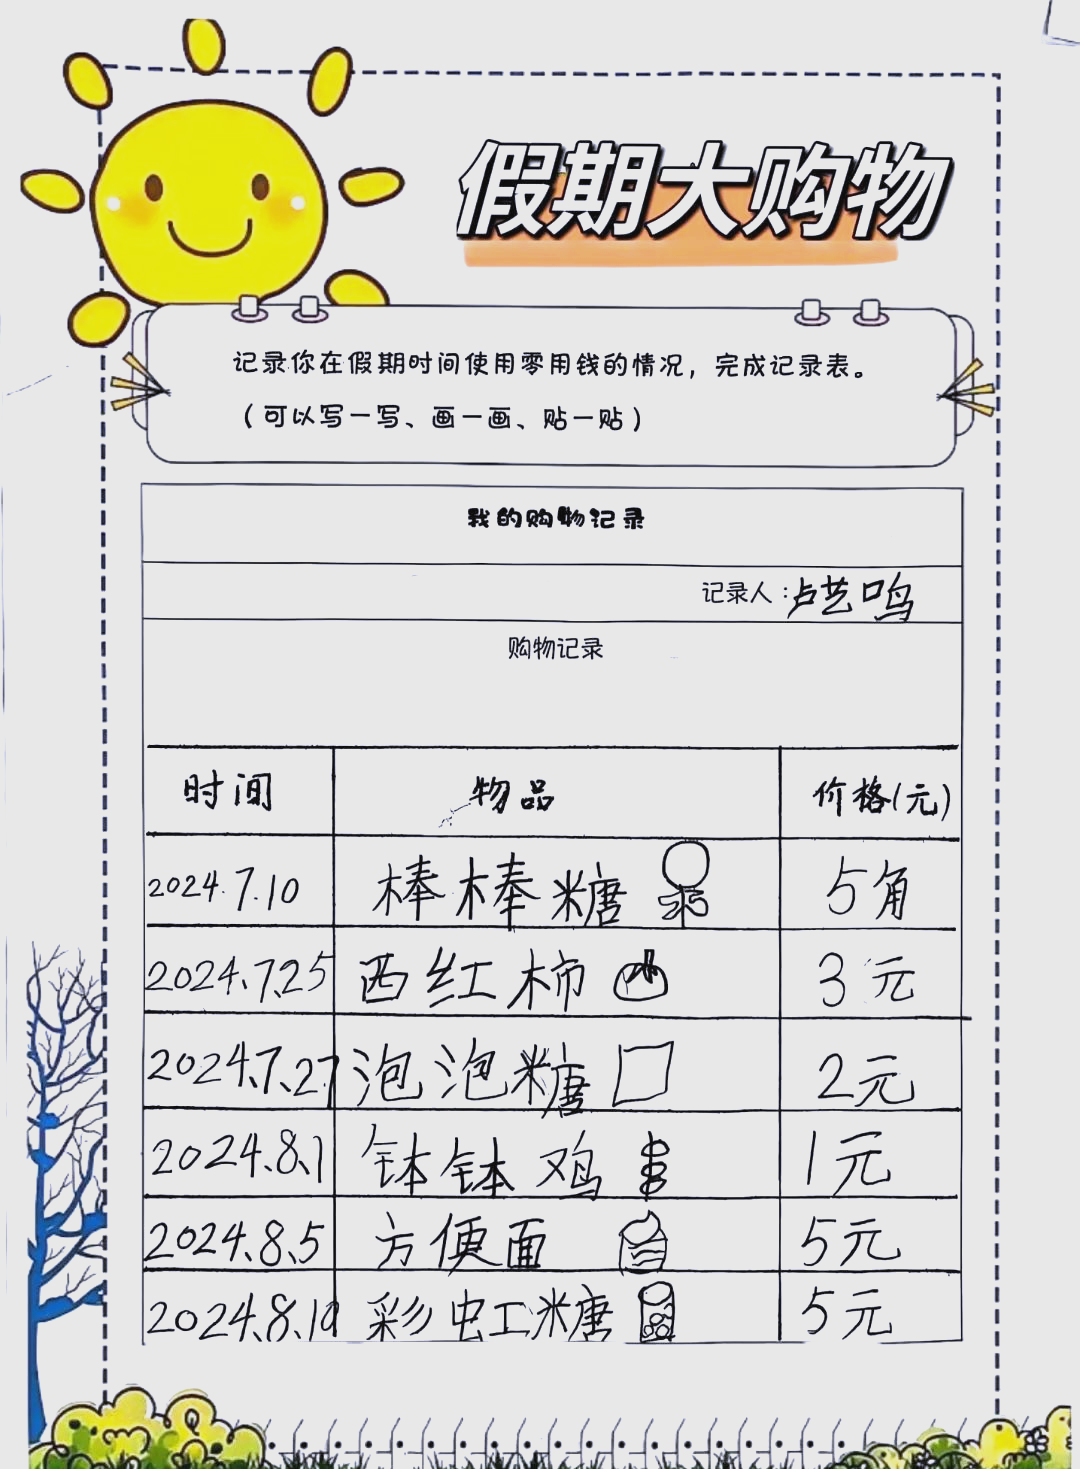 假期大购物
记录你在假期时间使用零用钱的情况，完成记录表。
（可以写一写、画一画、贴一贴）
我的购物记录
记录人：卢艺鸣
购物记录
时间 物品 价格(元)
2024.7.10 棒棒糖 5角
2024.7.25 西红柿 3元
2024.7.27 泡泡糖 2元
2024.8.1 钵钵鸡 1元
2024.8.5 方便面 5元
2024.8.19 彩虹糖 5元